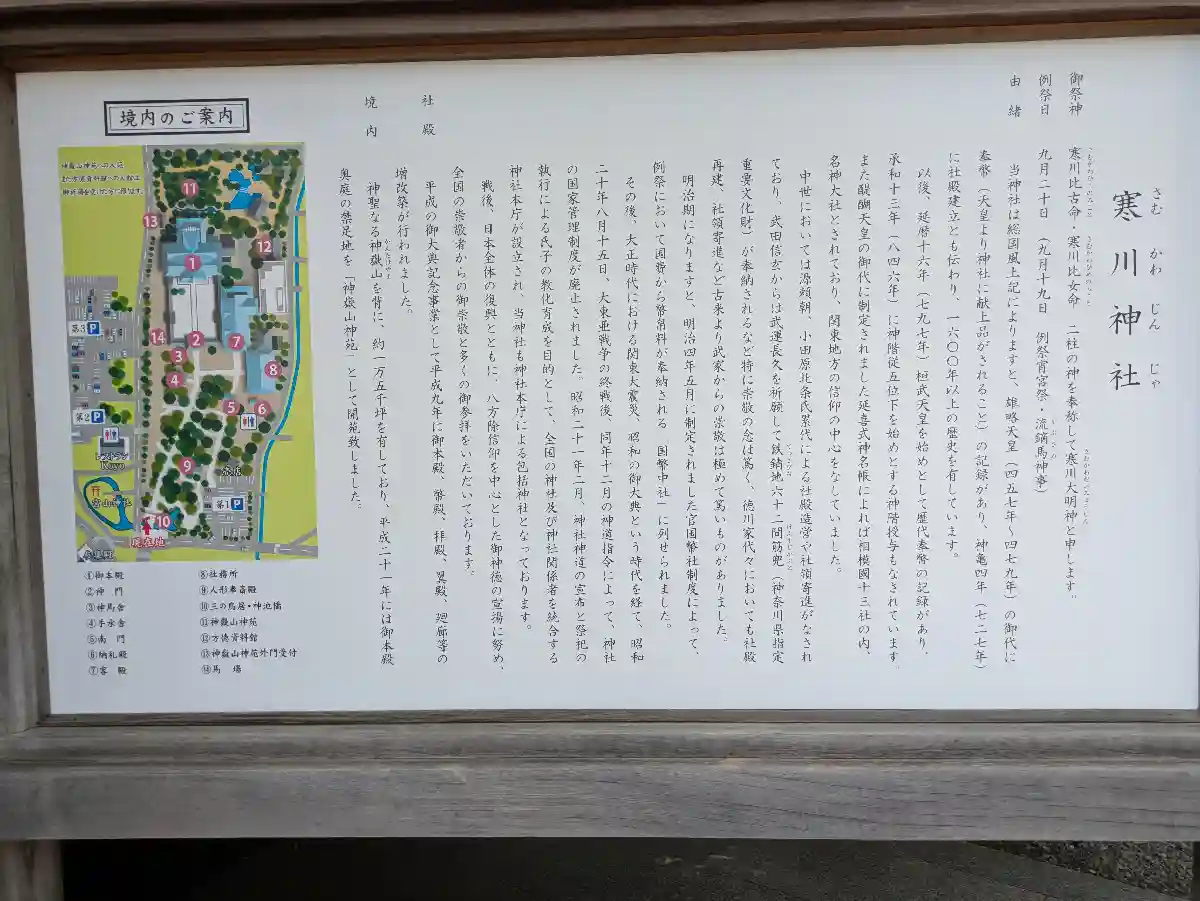 寒川神社
さむ かわ じん じゃ
御祭神 寒川比古命・寒川比女命 二柱の神を奉称して寒川大明神と申します。
例祭日 九月二十日 (九月十九日 例祭宵宮祭・流鏑馬神事)
由緒 当神社は総国風土記によりますと、雄略天皇(四五七年~四七九年)の御代に
奉幣(天皇より神社に献上品がされること)の記録があり、神亀四年(七二七年)
に社殿建立とも伝わり、一六〇〇年以上の歴史を有しています。
以後、延暦十六年(七九七年)桓武天皇を始めとして歴代奉幣の記録があり、
承和十三年(八四六年)に神階従五位下を始めとする神階授与もなされています。
また醍醐天皇の御代に制定されました延喜式神名帳によれば相模國十三社の内、
名神大社とされており、関東地方の信仰の中心をなしていました。
中世においては源頼朝、小田原北条氏累代による社殿造営や社領寄進がなされ
ており、武田信玄からは武運長久を祈願して鉄錆地六十二間筋兜(神奈川県指定
重要文化財)が奉納されるなど特に崇敬の念は篤く、徳川家代々においても社殿
再建、社領寄進など古来より武家からの崇敬は極めて篤いものがありました。
明治期になりますと、明治四年五月に制定されました官国幣社制度によって、
例祭において国費から幣帛料が奉納される「国幣中社」に列せられました。
その後、大正時代における関東大震災、昭和の御大典という時代を経て、昭和
二十年八月十五日、大東亜戦争の終戦後、同年十二月の神道指令によって、神社
の国家管理制度が廃止されました。昭和二十一年二月、神社神道の宣布と祭祀の
執行による氏子の教化育成を目的として、全国の神社及び神社関係者を統合する
神社本庁が設立され、当神社も神社本庁による包括神社となっております。
戦後、日本全体の復興とともに、八方除信仰を中心とした御神徳の宣揚に努め、
全国の崇敬者からの御崇敬と多くの御参拝をいただいております。
社殿 平成の御大典記念事業として平成九年に御本殿、幣殿、拝殿、翼殿、廻廊等の
増改築が行われました。
境内 神聖なる神嶽山を背に、約一万五千坪を有しており、平成二十一年には御本殿
奥庭の禁足地を「神嶽山神苑」として開苑致しました。
境内のご案内
11
13
12
1
第3 P
14
2
7
3
4
8
5
6
第2 P
レストラン
Kayo
9
売店
宮山神社
第1 P
10
現在地
①御本殿
②神門
③神馬舎
④手水舎
⑤南門
⑥納札殿
⑦客殿
⑧社務所
⑨人形奉斎殿
⑩三の鳥居・神池橋
⑪神嶽山神苑
⑫方徳資料館
⑬神嶽山神苑外門受付
⑭馬場